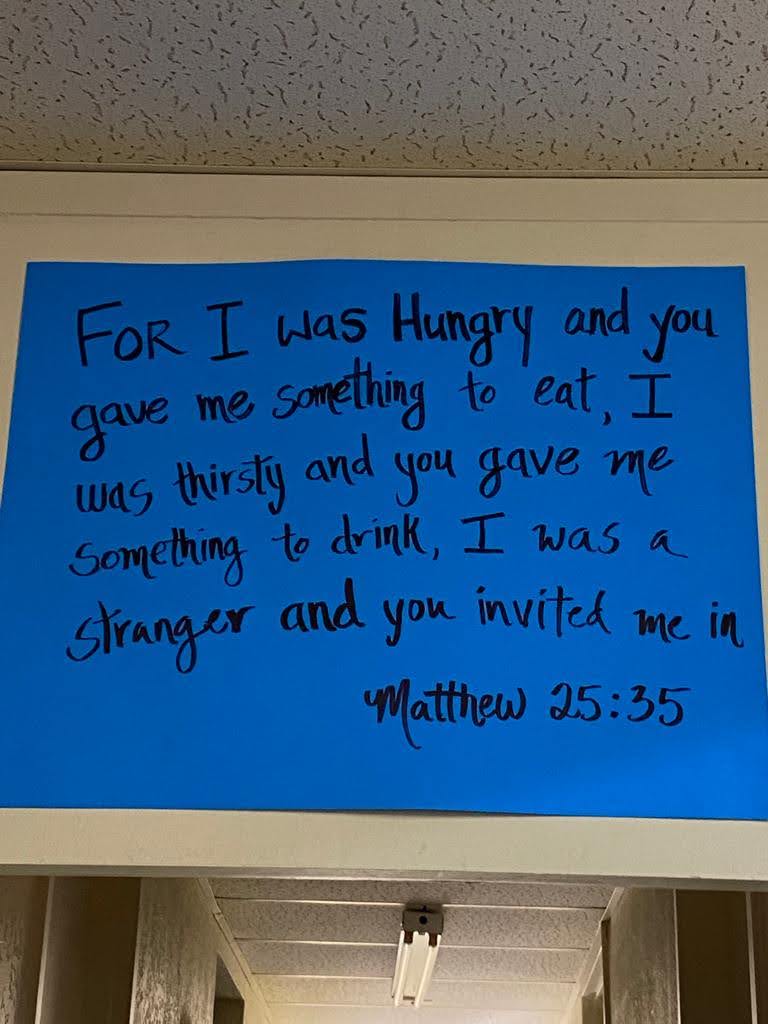 FOR I was Hungry and you
gave me something to eat, I
was thirsty and you gave me
something to drink, I was a
stranger and you invited me in
Matthew 25:35